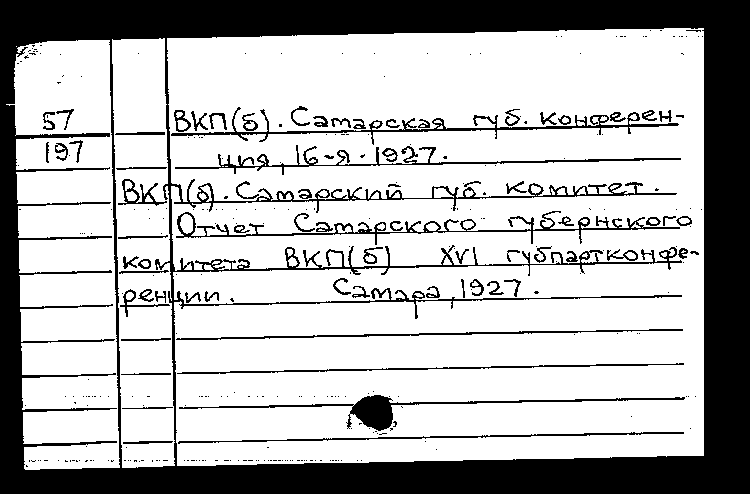 57 ВКП(б). Самарская губ. конферен-
197 ция, 16-я. 1927.
ВКП(б). Самарский губ. комитет.
Отчет Самарского губернского
комитета ВКП(б) XVI губпартконфе-
ренции. Самара, 1927.